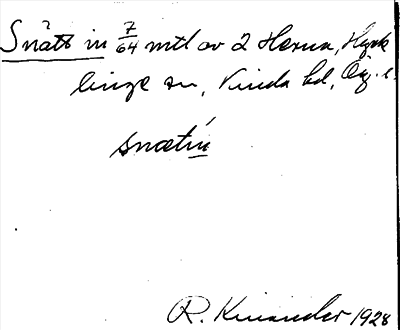 Snätt in 7/64 mtl av 2 Herna, Hyck
linge sn, Vinda hd, Ög. l.
snœtin
R. Kinander 1928